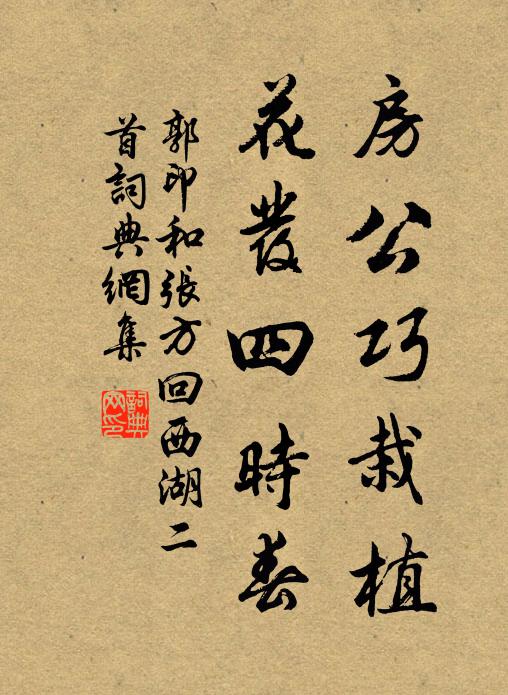 房公巧栽植
花發四時春
郭印和張方回西湖二
首詞典網集
詞典网印